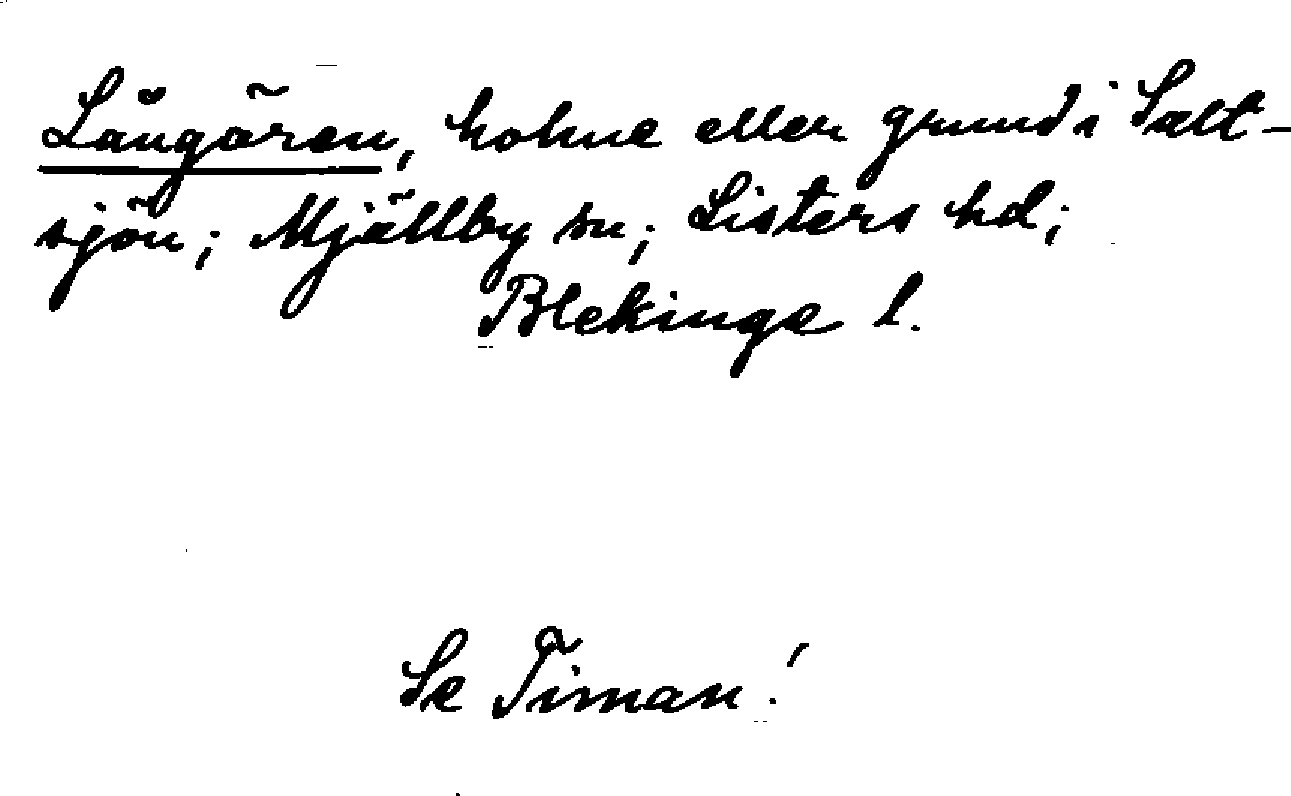 Långören, holme eller grund i Salt-
sjön; Mjällby sn; Listers hd;
Blekinge l.
Se Timan!